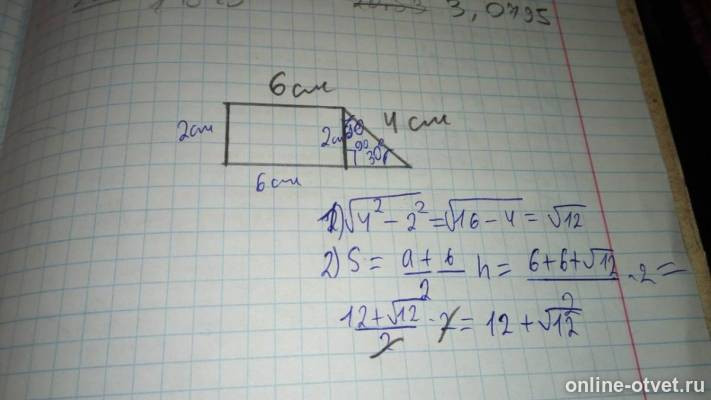 3,0795
6 см
2 см
2 см
4 см
90
30°
6 см
1) √4² - 2² = √16 - 4 = √12
2) S = a + b / 2 h = 6+6+√12 / 2 · 2 =
12+√12 / 2 · 2 = 12 + √12
online-otvet.ru